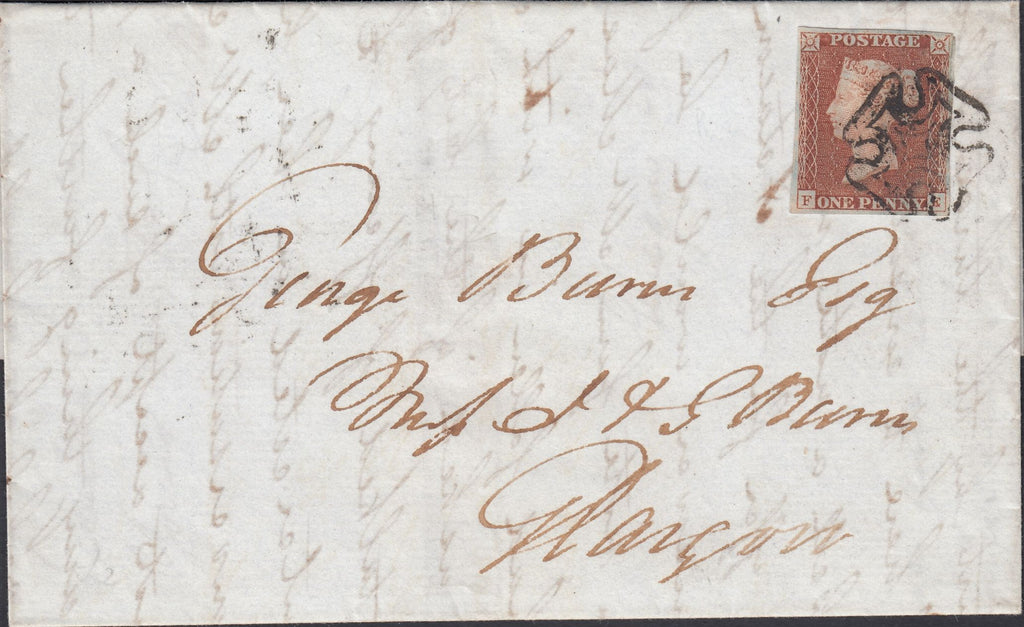 POSTAGE
F ONE PENNY E
George Burns Esq
Messrs J & G Burns
Glasgow